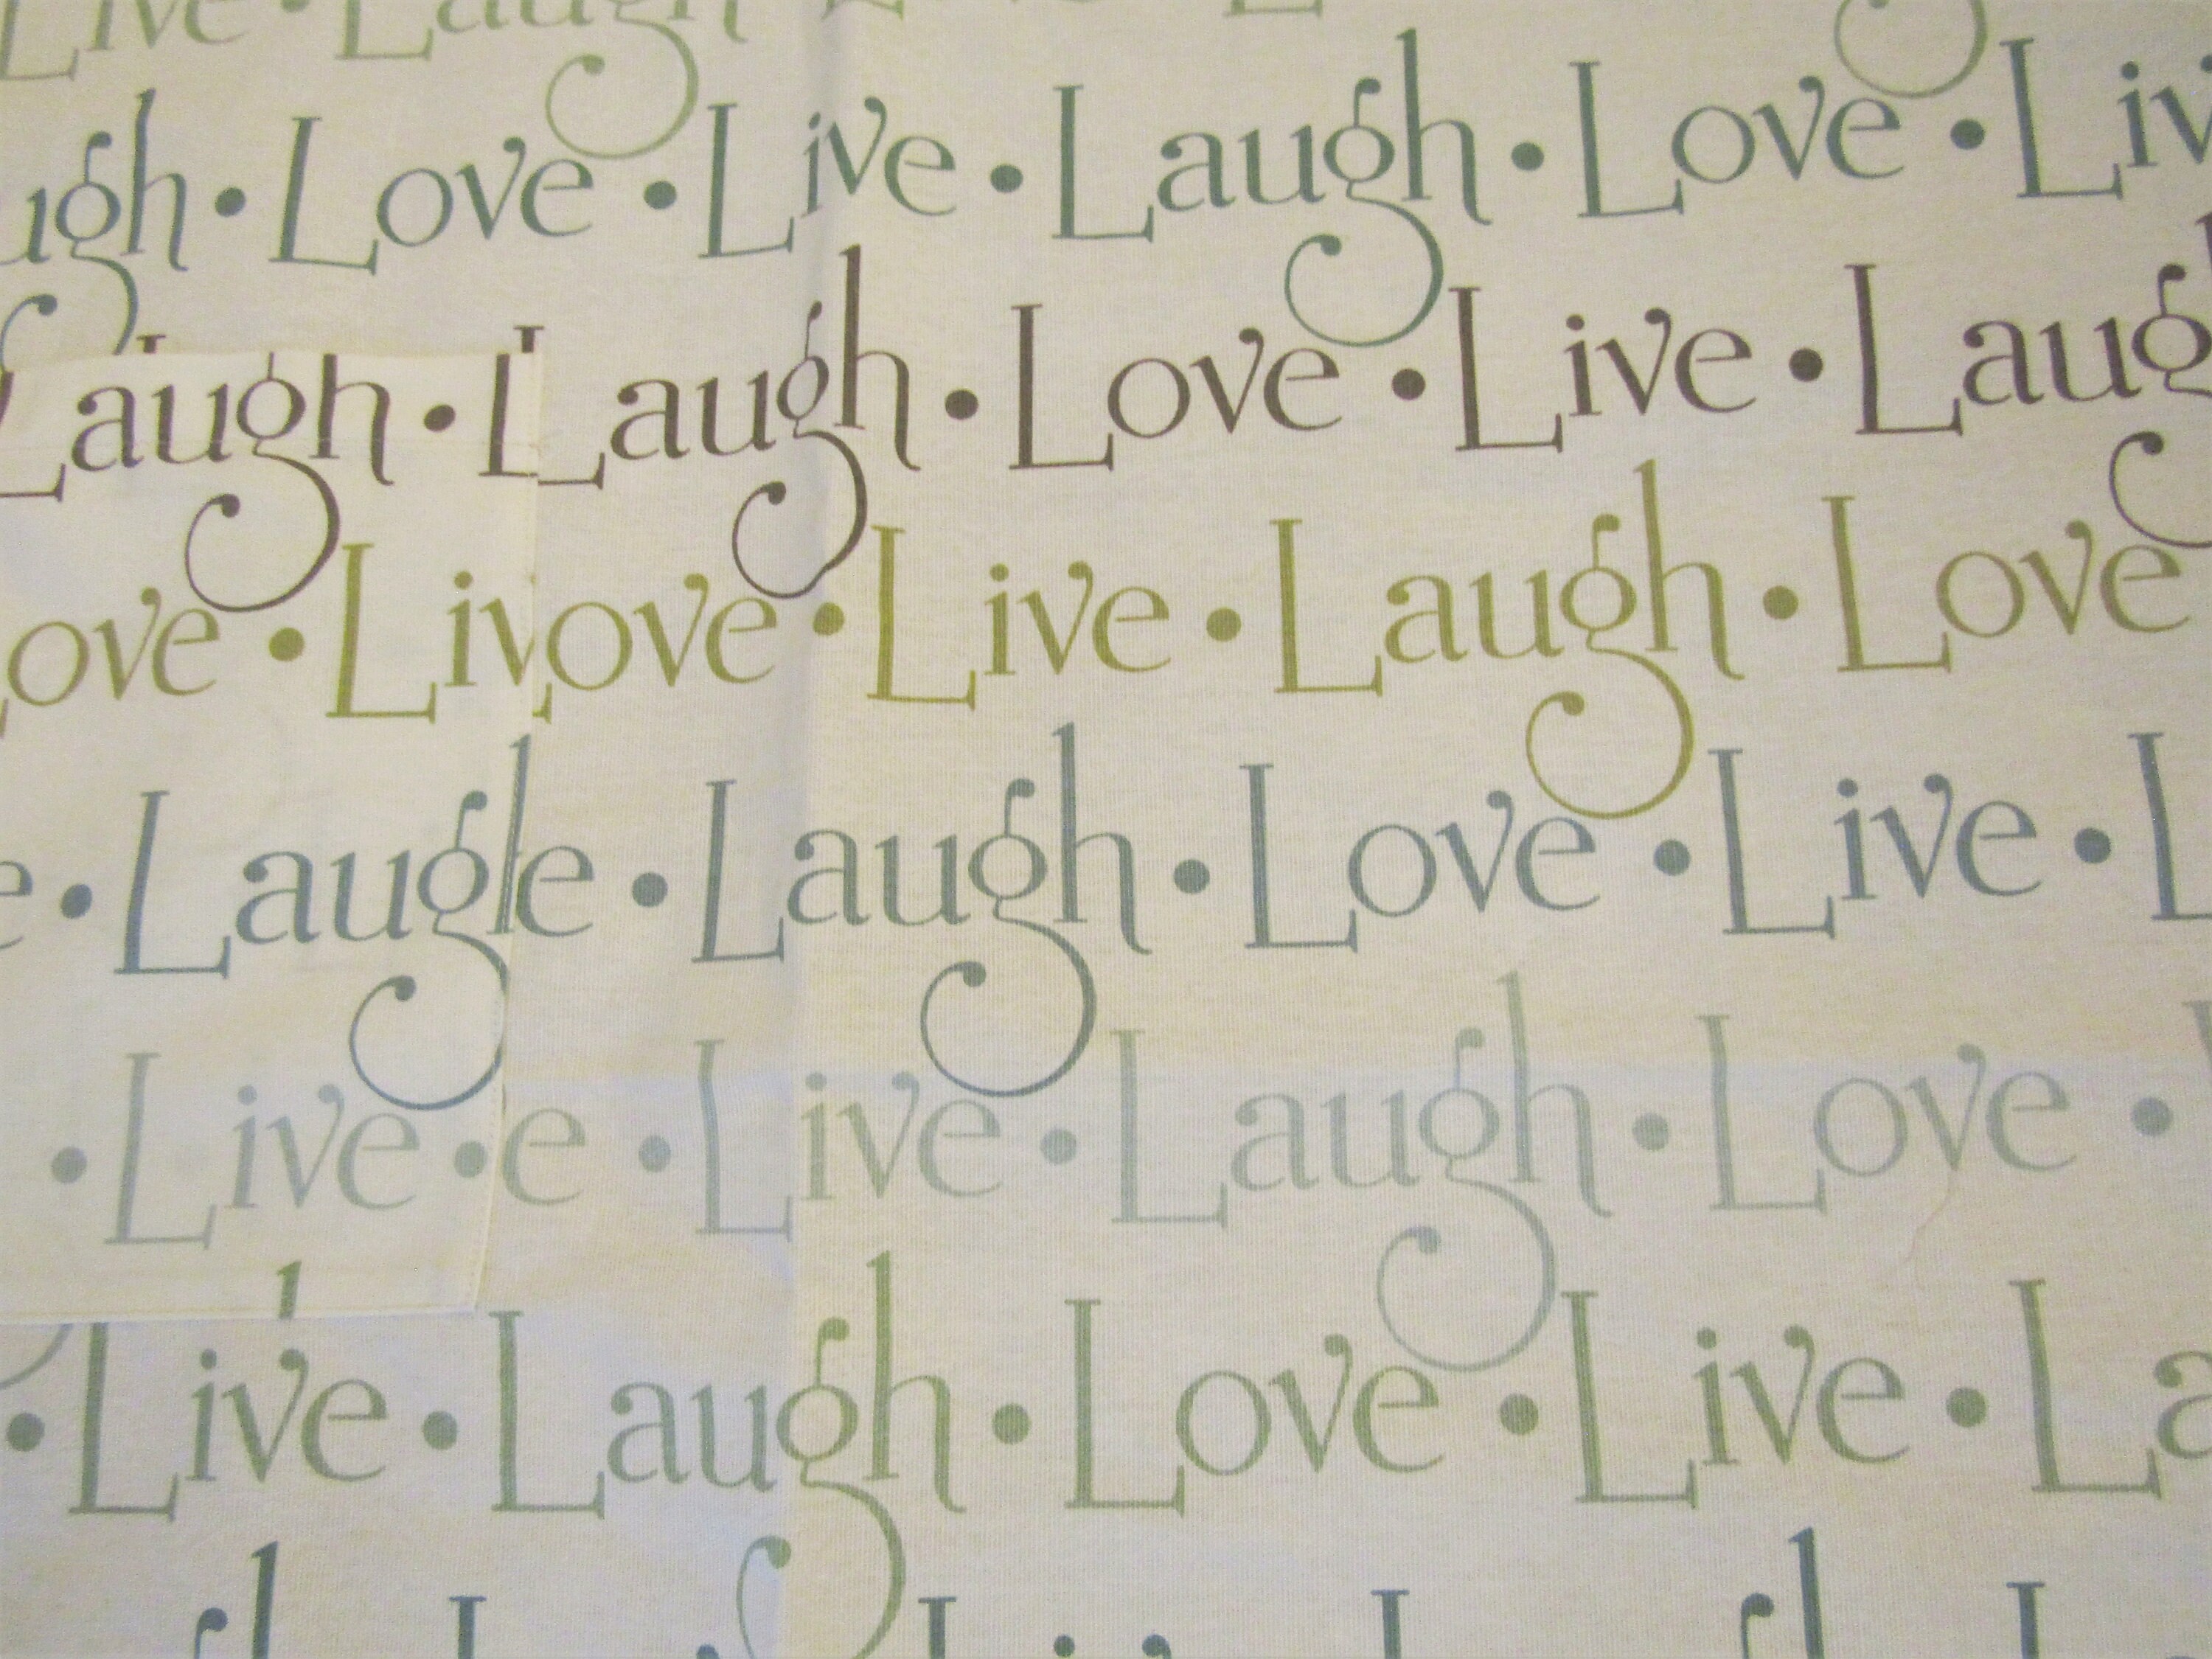 Live • Laugh
ugh • Love • Live • Laugh • Love • Liv
Laugh • L Laugh • Love • Live • Laug
ove • Liv ove • Live • Laugh • Love
e • Laug e • Laugh • Love • Live • L
• Live • e • Live • Laugh • Love •
• Live • Laugh • Love • Live • La